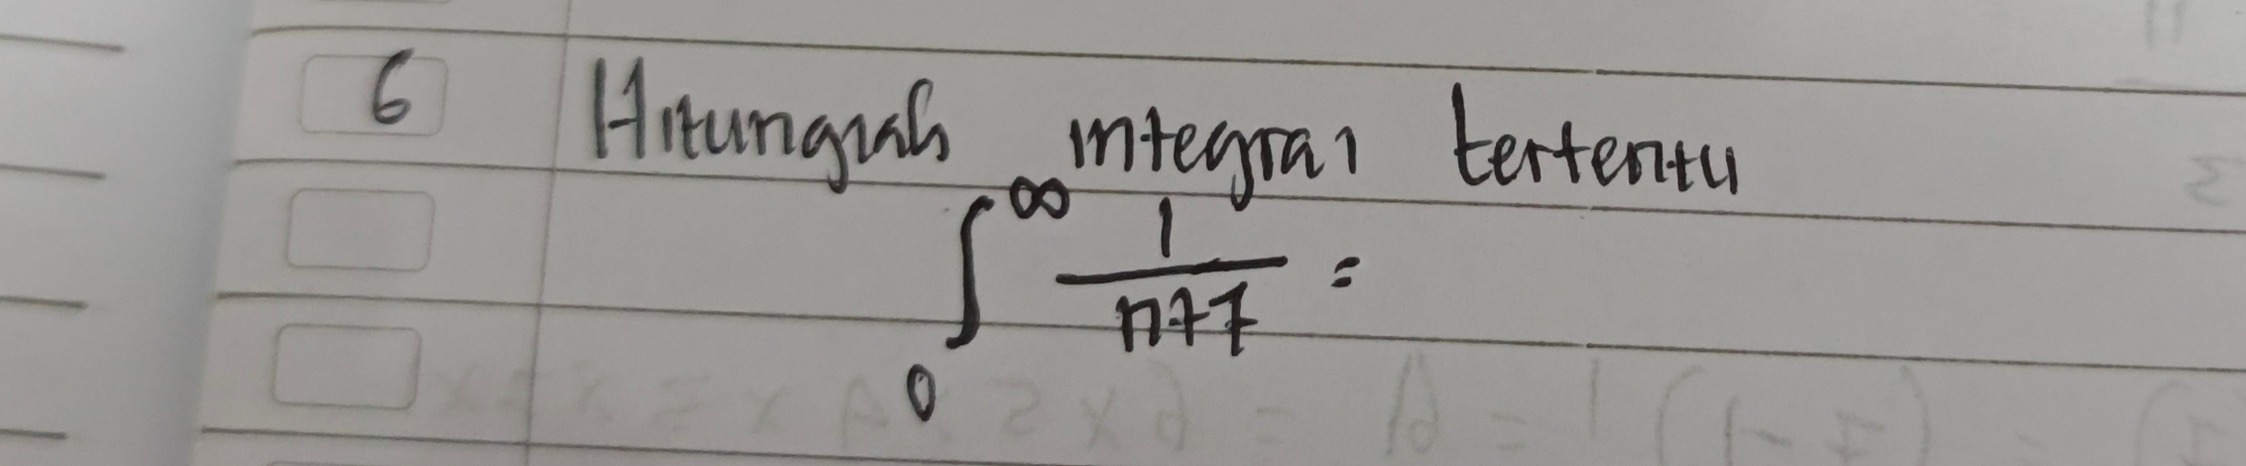 6 Hitunglah integral tertentu
∫₀^∞ 1/(n+7) =